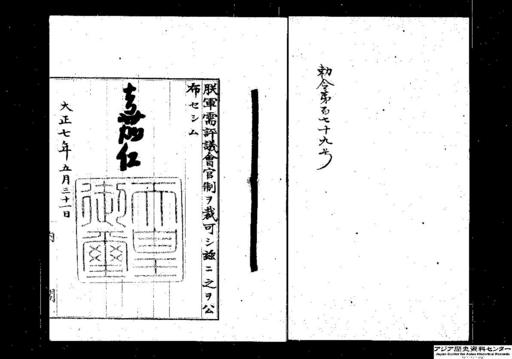 勅令第百七十九号
朕軍需評議會官制ヲ裁可シ茲ニ之ヲ公
布セシム
嘉仁
天皇
御璽
大正七年五月三十一日
内
閣
アジア歴史資料センター
Japan Center for Asian Historical Records